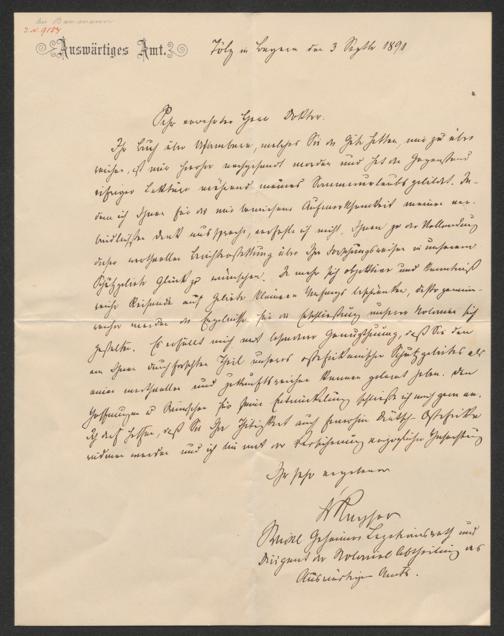 An Baumann
Z.N. 9184
Auswärtiges Amt.
Tölz in Bayern den 3 Septbr 1891
Sehr verehrter Herr Doktor.
Ihr Buch über Usambara, welches Sie die Güte hatten, mir zu über
weisen, ist mir hierher nachgesandt worden und hat den Gegenstand
eifriger Lektüre während meines Sommerurlaubs gebildet. In
dem ich Ihnen für die mir bewiesene Aufmerksamkeit meinen ver
bindlichsten Dank ausspreche, verfehle ich nicht, Ihnen zu der Vollendung
dieser werthvollen Berichterstattung über Ihre Forschungsreisen in unserem
Schutzgebiete Glück zu wünschen. Je mehr sich objektive und kenntniß
reiche Reisende auf Gebiete kleineren Umfangs beschränken, desto gewinn
reicher werden die Ergebnisse für die Erschließung unserer Kolonien sich
gestalten. Es erfüllt mich mit besonderer Genugthuung, daß Sie den
von Ihnen durchforschten Theil unseres ostafrikanischen Schutzgebietes als
einen werthvollen und zukunftsreichen kennen gelernt haben. Den
Hoffnungen u Wünschen für seine Entwickelung schließe ich mich gern an.
Ich darf hoffen, daß Sie Ihre Thätigkeit auch fernerhin Deutsch-Ostafrika
widmen werden und ich bin mit der Versicherung vorzüglicher Hochachtung
Ihr sehr ergebener
Kayser
Wirkl Geheimer Legationsrath und
Dirigent der Kolonial Abtheilung des
Auswärtigen Amts.